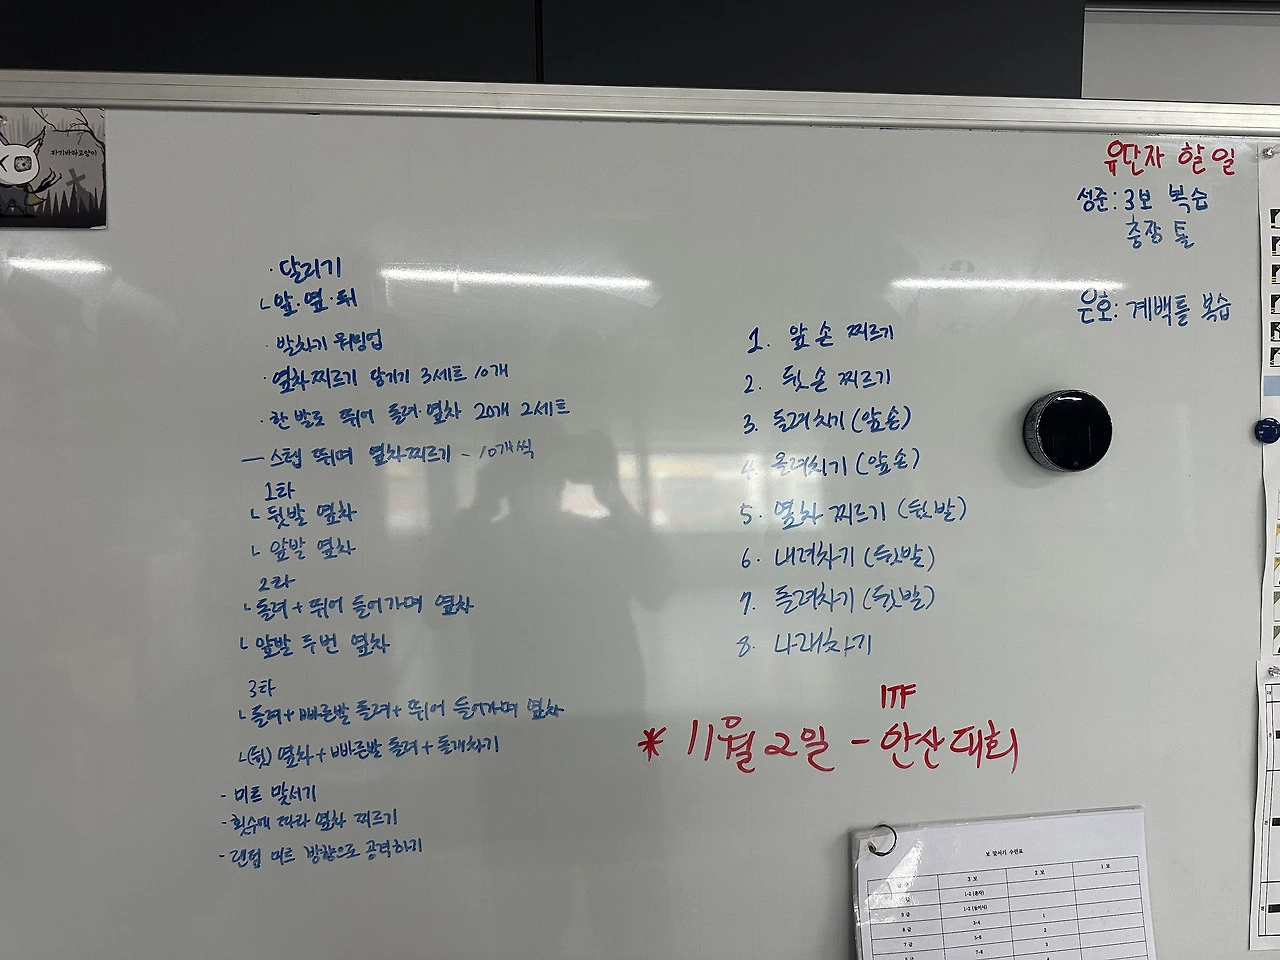 자기바라고양이
· 달리기
ㄴ 앞·옆·뒤
· 발차기 워밍업
· 옆차찌르기 당기기 3세트 10개
· 한 발로 뛰어 돌려·옆차 20개 2세트
— 스텝 뛰며 옆차찌르기 - 10개씩
1타
ㄴ 뒷발 옆차
ㄴ 앞발 옆차
2타
ㄴ 돌려 + 뛰어 들어가며 옆차
ㄴ 앞발 두번 옆차
3타
ㄴ 돌려 + 빠른발 돌려 + 뛰어 들어가며 옆차
ㄴ (뒷) 옆차 + 빠른발 돌려 + 돌개차기
- 미트 맞서기
- 횟수에 따라 옆차 찌르기
- 랜덤 미트 방향으로 공격하기
1. 앞 손 찌르기
2. 뒷 손 찌르기
3. 돌려치기 (앞손)
4. 올려치기 (앞손)
5. 옆차 찌르기 (뒷발)
6. 내려차기 (뒷발)
7. 돌려차기 (뒷발)
8. 나래차기
ITF
* 11월 2일 - 안산대회
유단자 할 일
성준: 3보 복습
충장 틀
은호: 계백틀 복습
보 맞서기 수련표
급 수 3 보 2 보 1 보
1-2 (혼자)
9 급 1-2 (둘이서)
8 급 3-4 1
7 급 5-6 2
7-8 3